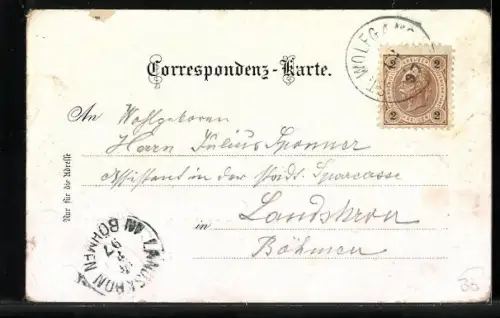 Correspondenz-Karte.
WOLFGANG
2 2
2 2
An Wohlgeboren
Herrn Julius Sponner
Assistent in der städt. Sparcasse
in Landskron
Böhmen
Nur für die Adresse
LANDSKRON IN BÖHMEN
97